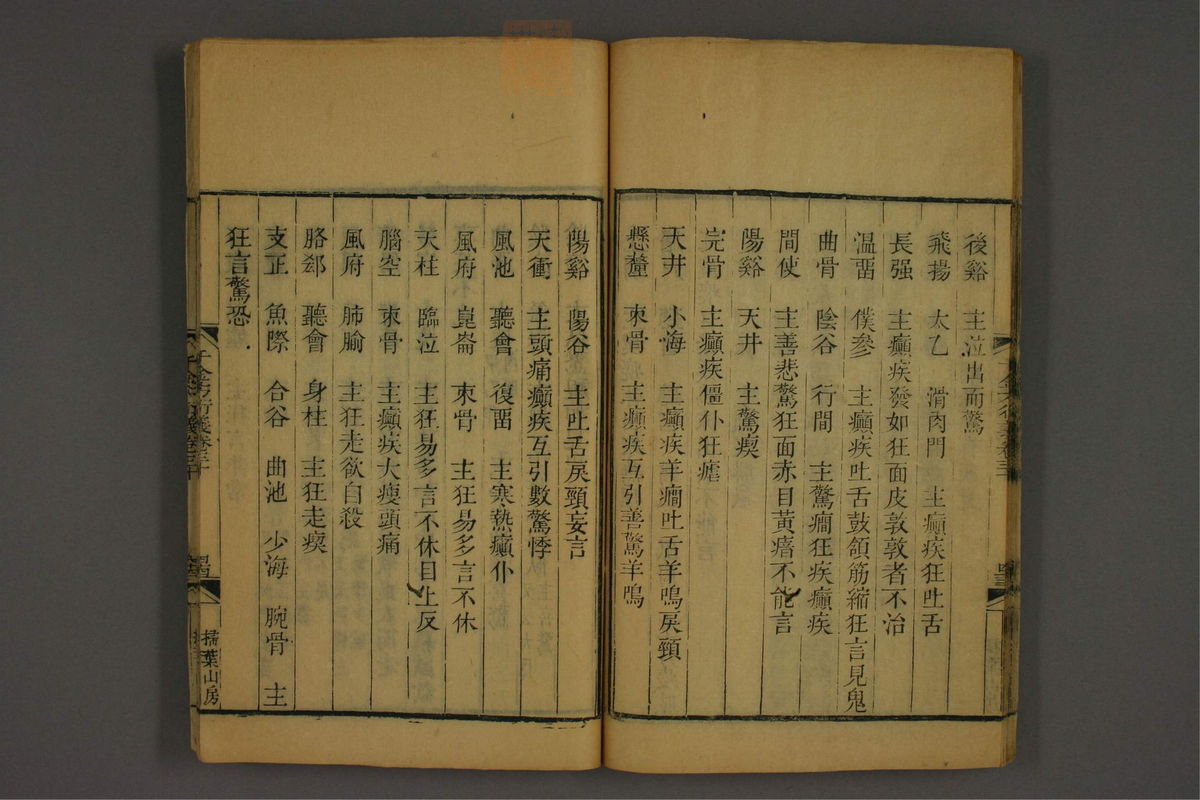 後谿 主泣出而驚
飛揚 太乙 滑肉門 主癲疾狂吐舌
長强 主癲疾發如狂面皮敦敦者不治
温畱 僕參 主癲疾吐舌鼓頷筋縮狂言見鬼
曲骨 陰谷 行間 主驚癎狂疾癲疾
間使 主善悲驚狂面赤目黄瘖不能言
陽谿 天井 主驚瘈
完骨 主癲疾僵仆狂瘧
天井 小海 主癲疾羊癎吐舌羊鳴戾頸
懸釐 束骨 主癲疾互引善驚羊鳴
陽谿 陽谷 主吐舌戾頸妄言
天衝 主頭痛癲疾互引數驚悸
風池 聽會 復畱 主寒熱癲仆
風府 崑崙 束骨 主狂易多言不休
天柱 臨泣 主狂易多言不休目上反
腦空 束骨 主癲疾大瘦頭痛
風府 肺腧 主狂走欲自殺
胳郄 聽會 身柱 主狂走瘈
支正 魚際 合谷 曲池 少海 腕骨 主
狂言驚恐
掃葉山房